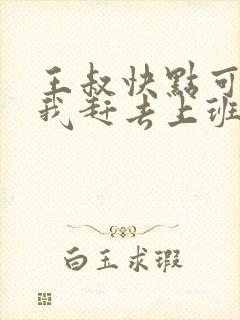 王叔快點可
我赶去上班
白玉求瑕